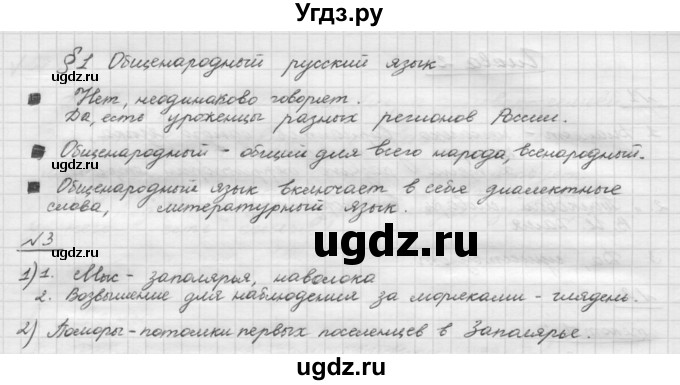 Угдз.ру
§1 Общенародный русский язык
угдз.ru
Нет, неодинаково говорят.
Да, есть уроженцы разных регионов России.
угдз.ru
Общенародный - общий для всего народа, всенародный.
Общенародный язык включает в себя диалектные
слова, литературный язык.
№3
угдз.ru
1) 1. Мыс - заполярья, наволока
2. Возвышение для наблюдения за моряками - глядень.
2) Поморы - потомки первых поселенцев в Заполярье.
угдз.ru
угдз.ru